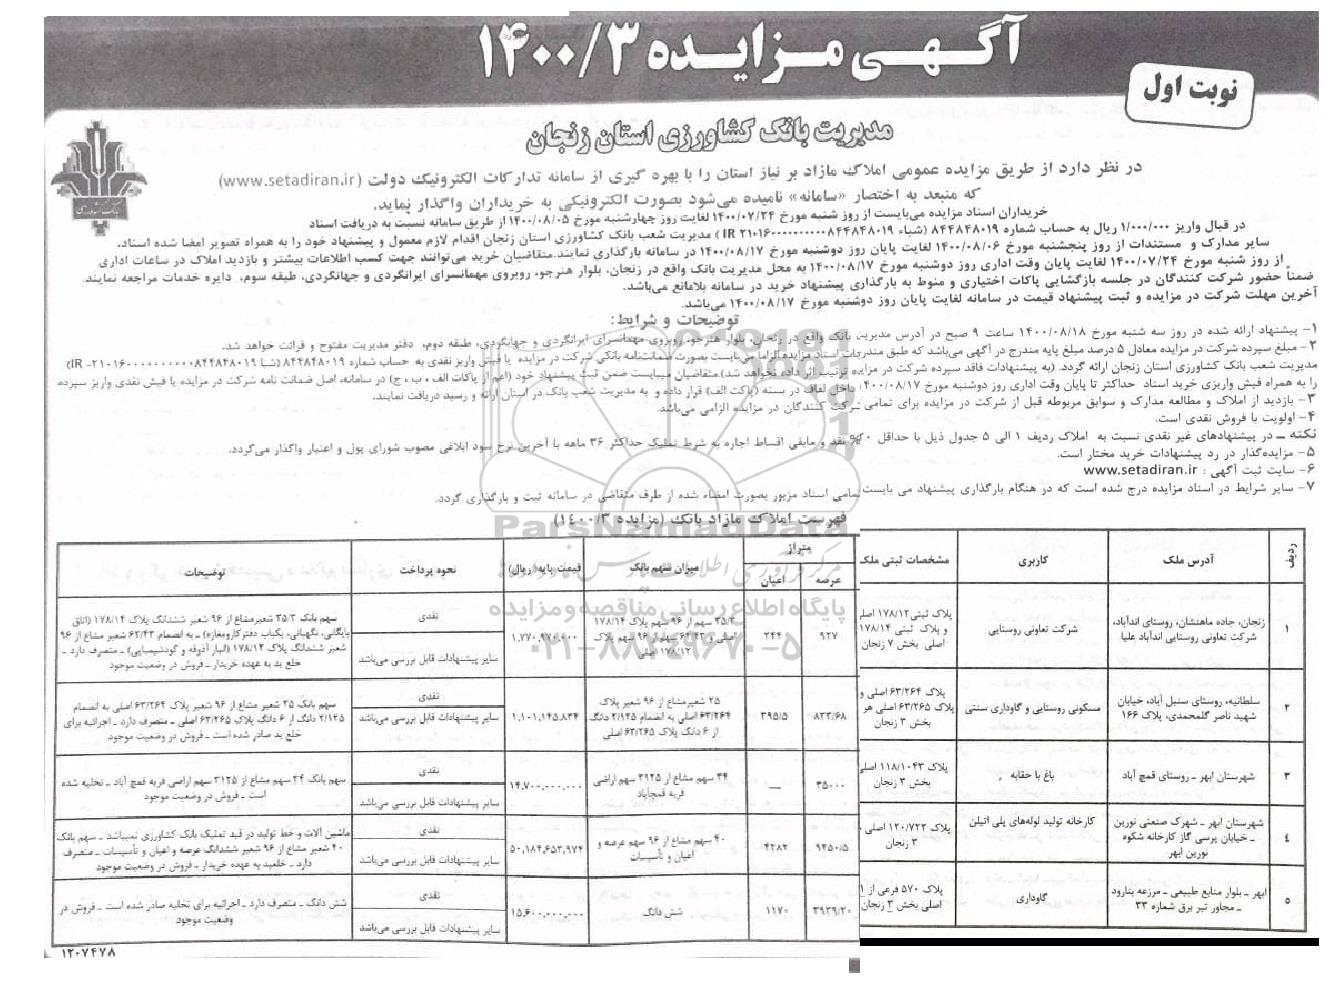 آگهی مزایده ۱۴۰۰/۳
نوبت اول
مدیریت بانک کشاورزی استان زنجان
در نظر دارد از طریق مزایده عمومی املاک مازاد بر نیاز استان را با بهره گیری از سامانه تدارکات الکترونیک دولت (www.setadiran.ir)
که منبعد به اختصار «سامانه» نامیده می‌شود بصورت الکترونیکی به خریداران واگذار نماید.
خریداران اسناد مزایده می‌بایست از روز شنبه مورخ ۱۴۰۰/۰۷/۲۴ لغایت روز چهارشنبه مورخ ۱۴۰۰/۰۸/۰۵ از طریق سامانه نسبت به دریافت اسناد
در قبال واریز ۱/۰۰۰/۰۰۰ ریال به حساب شماره ۸۴۴۸۴۸۰۱۹ مدیریت شعب بانک کشاورزی استان زنجان اقدام لازم معمول و پیشنهاد خود را به همراه تصویر امضا شده اسناد.
سایر مدارک و مستندات از روز پنجشنبه مورخ ۱۴۰۰/۰۸/۰۶ لغایت پایان روز دوشنبه مورخ ۱۴۰۰/۰۸/۱۷ در سامانه بارگذاری نمایند.متقاضیان خرید می‌توانند جهت کسب اطلاعات بیشتر و بازدید املاک در ساعات اداری
از روز شنبه مورخ ۱۴۰۰/۰۷/۲۴ لغایت پایان وقت اداری روز دوشنبه مورخ ۱۴۰۰/۰۸/۱۷ به محل مدیریت بانک واقع در زنجان، بلوار هنرجو، روبروی مهمانسرای ایرانگردی و جهانگردی، طبقه سوم، دایره خدمات مراجعه نمایند.
ضمناً حضور شرکت کنندگان در جلسه بازگشایی پاکات اختیاری و منوط به بارگذاری پیشنهاد خرید در سامانه بلامانع می‌باشد.
آخرین مهلت شرکت در مزایده و ثبت پیشنهاد قیمت در سامانه لغایت پایان روز دوشنبه مورخ ۱۴۰۰/۰۸/۱۷ می‌باشد.
توضیحات و شرایط:
۱- پیشنهاد ارائه شده در روز سه شنبه مورخ ۱۴۰۰/۰۸/۱۸ ساعت ۹ صبح در آدرس مدیریت بانک واقع در زنجان، بلوار هنرجو، روبروی مهمانسرای ایرانگردی و جهانگردی، طبقه دوم، دفتر مدیریت مفتوح و قرائت خواهد شد.
۲- مبلغ سپرده شرکت در مزایده معادل ۵ درصد مبلغ پایه مندرج در آگهی می‌باشد که طبق مندرجات اسناد مزایده الزاما می‌بایست بصورت ضمانت‌نامه بانکی شرکت در مزایده یا فیش واریز نقدی به حساب شماره ۸۴۴۸۴۸۰۱۹
مدیریت شعب بانک کشاورزی استان زنجان ارائه گردد. (به پیشنهادات فاقد سپرده شرکت در مزایده ترتیب اثر داده نخواهد شد).متقاضیان میبایست ضمن ثبت پیشنهاد خود (اعم از پاکات الف ، ب ، ج) در سامانه، اصل ضمانت نامه شرکت در مزایده یا فیش نقدی واریز سپرده
را به همراه فیش واریزی خرید اسناد حداکثر تا پایان وقت اداری روز دوشنبه مورخ ۱۴۰۰/۰۸/۱۷ داخل لفافه در بسته (پاکت الف) قرار داده و به مدیریت شعب بانک در استان ارائه و رسید دریافت نمایند.
۳- بازدید از املاک و مطالعه مدارک و سوابق مربوطه قبل از شرکت در مزایده برای تمامی شرکت کنندگان در مزایده الزامی می‌باشد.
۴- اولویت با فروش نقدی است.
نکته ـ در پیشنهادهای غیر نقدی نسبت به املاک ردیف ۱ الی ۵ جدول ذیل با حداقل نقد و مابقی اقساط اجاره به شرط تملیک حداکثر ۳۶ ماهه با آخرین نرخ سود ابلاغی مصوب شورای پول و اعتبار واگذار می‌گردد.
۵- مزایده‌گذار در رد پیشنهادات خرید مختار است.
۶- سایت ثبت آگهی : www.setadiran.ir
۷- سایر شرایط در اسناد مزایده درج شده است که در هنگام بارگذاری پیشنهاد می بایست تمامی اسناد مزبور بصورت امضاء شده از طرف متقاضی در سامانه ثبت و بارگذاری گردد.
فهرست املاک مازاد بانک (مزایده ۱۴۰۰/۳)
ParsNamadData
پایگاه اطلاع رسانی مناقصه و مزایده
۰۲۱-۸۸۳۴۹۶۷۰-۵
ردیف | آدرس ملک | کاربری | مشخصات ثبتی ملک | متراژ عرصه | اعیان | میزان سهم بانک | قیمت پایه (ریال) | نحوه پرداخت | توضیحات
۱ | زنجان، جاده ماهنشان، روستای اندآباد، شرکت تعاونی روستایی اندآباد علیا | شرکت تعاونی روستایی | پلاک ثبتی ۱۷۸/۱۲ اصلی و پلاک ثبتی ۱۷۸/۱۴ اصلی بخش ۷ زنجان | ۹۲۷ | ۲۴۴ | ۳۵/۲ سهم از ۹۶ سهم پلاک ۱۷۸/۱۴ اصلی و ۶۲/۴۳ سهم از ۹۶ سهم پلاک ۱۷۸/۱۲ اصلی | ۱,۷۷۰,۹۷۰,۰۰۰ | نقدی | سایر پیشنهادات قابل بررسی می‌باشد | سهم بانک ۳۵/۲ شعیرمشاع از ۹۶ شعیر ششدانگ پلاک ۱۷۸/۱۴ (اتاق بایگانی، نگهبانی، یکباب دفترکارومغازه) ـ به انضمام ۶۲/۴۳ شعیر مشاع از ۹۶ شعیر ششدانگ پلاک ۱۷۸/۱۲ (انبار آذوقه و کودشیمیایی) ـ متصرف دارد ـ خلع ید به عهده خریدار ـ فروش در وضعیت موجود
۲ | سلطانیه، روستای سنبل آباد، خیابان شهید ناصر گلمحمدی، پلاک ۱۶۶ | مسکونی روستایی و گاوداری سنتی | پلاک ۶۳/۲۶۴ اصلی و پلاک ۶۳/۲۶۵ اصلی هر بخش ۳ زنجان | ۸۳۳/۶۸ | ۳۹۵/۵ | ۲۵ شعیرمشاع از ۹۶ شعیر پلاک ۶۳/۲۶۴ اصلی به انضمام ۲/۱۲۵ دانگ از ۶ دانگ پلاک ۶۳/۲۶۵ اصلی | ۱,۱۰۱,۱۴۵,۸۳۴ | نقدی | سایر پیشنهادات قابل بررسی می‌باشد | سهم بانک ۲۵ شعیر مشاع از ۹۶ شعیر پلاک ۶۳/۲۶۴ اصلی به انضمام ۲/۱۲۵ دانگ از ۶ دانگ پلاک ۶۳/۲۶۵ اصلی ـ متصرف دارد ـ اجرائیه برای خلع ید صادر شده است ـ فروش در وضعیت موجود
۳ | شهرستان ابهر ـ روستای قمچ آباد | باغ با حقابه | پلاک ۱۱۸/۱۰۴۳ اصلی بخش ۳ زنجان | ۳۵۰۰۰ | — | ۲۴ سهم مشاع از ۳۱۲۵ سهم اراضی قریه قمچ‌آباد | ۱۴,۷۰۰,۰۰۰,۰۰۰ | نقدی | سایر پیشنهادات قابل بررسی می‌باشد | سهم بانک ۲۴ سهم مشاع از ۳۱۲۵ سهم اراضی قریه قمچ آباد ـ تخلیه شده است ـ فروش در وضعیت موجود
۴ | شهرستان ابهر ـ شهرک صنعتی نورین ـ خیابان پرسی گاز کارخانه شکوه نورین ابهر | کارخانه تولید لوله‌های پلی اتیلن | پلاک ۱۲۰/۷۲۲ اصلی ۳ زنجان | ۹۳۵۰/۵ | ۴۲۸۲ | ۴۰ سهم مشاع از ۹۶ سهم عرصه و اعیان و تأسیسات | ۵۰,۱۸۴,۶۵۳,۹۷۴ | نقدی | سایر پیشنهادات قابل بررسی می‌باشد | ماشین آلات و خط تولید در قید تملیک بانک کشاورزی نمیباشد ـ سهم بانک ۴۰ شعیر مشاع از ۹۶ شعیر ششدانگ عرصه و اعیان و تأسیسات ـ متصرف دارد ـ خلعید به عهده خریدار ـ فروش در وضعیت موجود
۵ | ابهر ـ بلوار منابع طبیعی ـ مزرعه بنارود ـ مجاور تیر برق شماره ۳۳ | گاوداری | پلاک ۵۷۰ فرعی از ۱ اصلی بخش ۳ زنجان | ۳۹۲۹/۲۰ | ۱۱۷۰ | شش دانگ | ۱۵,۶۰۰,۰۰۰,۰۰۰ | نقدی | سایر پیشنهادات قابل بررسی می‌باشد | شش دانگ ـ متصرف دارد ـ اجرائیه برای تخلیه صادر شده است ـ فروش در وضعیت موجود
۱۲۰۷۴۷۸